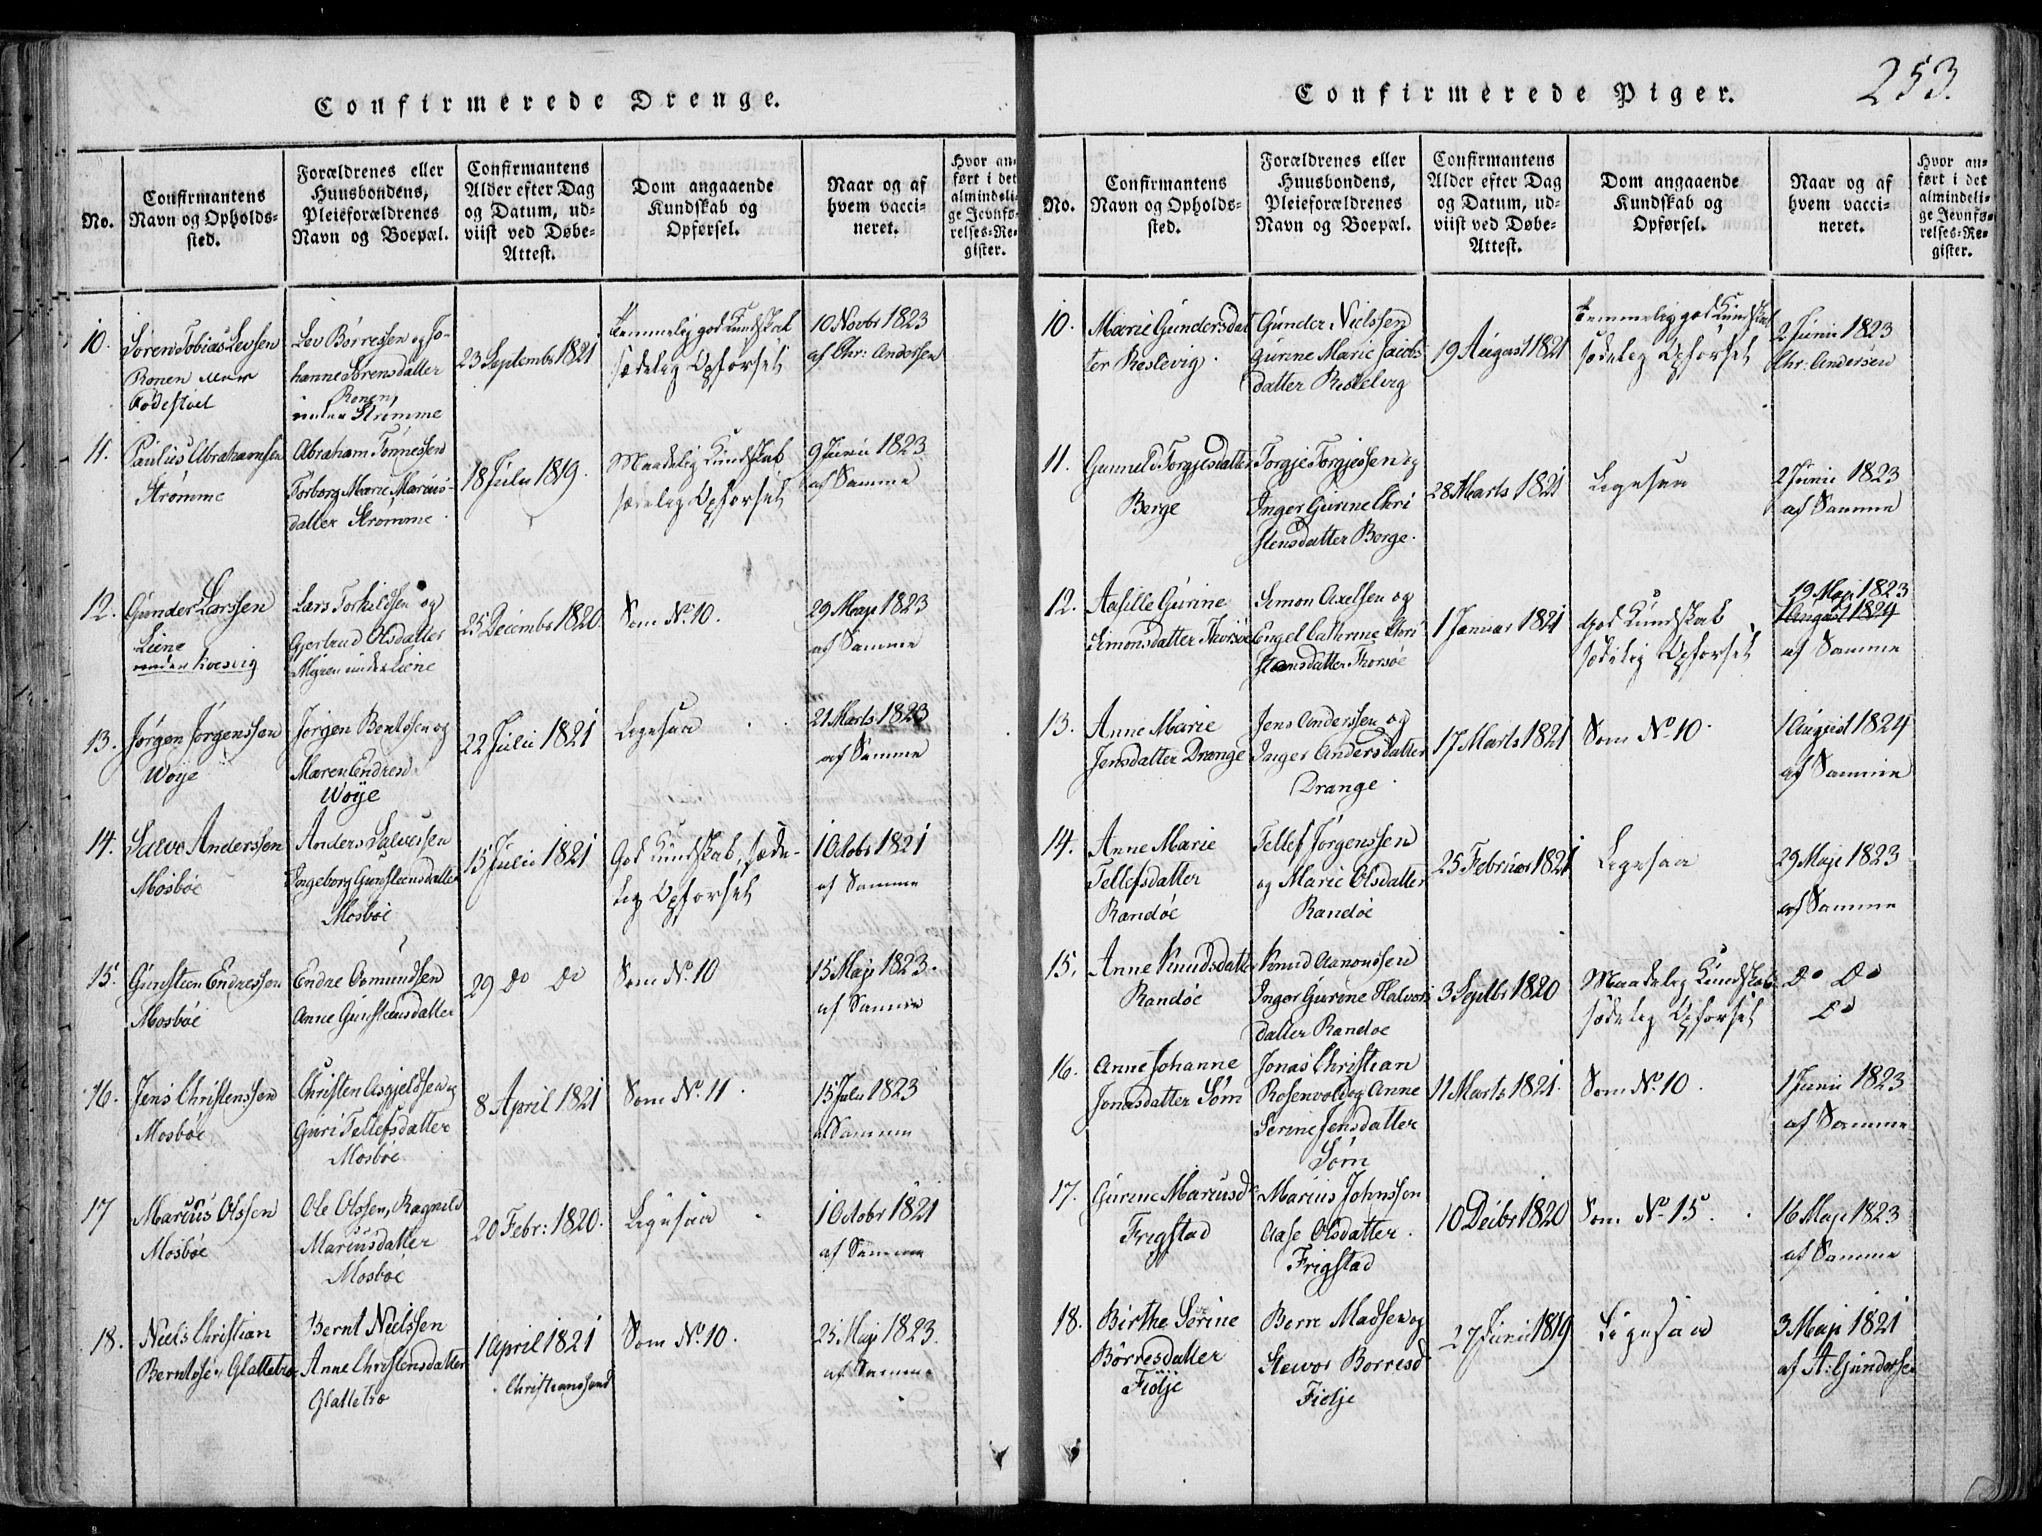 Confirmerede Drenge.
No.
Confirmantens
Navn og Opholds-
sted.
Forældrenes eller
Huusbondens,
Pleieforældrenes
Navn og Boepæl.
Confirmantens
Alder efter Dag
og Datum, ud-
viist ved Døbe-
Attest.
Dom angaaende
Kundskab og
Opførsel.
Naar og af
hvem vacci-
neret.
Hvor an-
ført i det
almindeli-
ge Jevnfø-
relses-Re-
gister.
10.
Sören Tobias Levsen
Ronen
Födestöel
Lev Börressen og Jo-
hanne Sörensdatter
Ronen,
under Strömme
23 Septembr 1821
temmelig god Kundskab
sædelig Opförsel
10 Novbr 1823
af Chr: Andersen
11.
Paulus Abrahamsen
Strömme
Abraham Tönnessen
Torborg Marie Marius-
datter Strömme.
18 Julii 1819.
Maadelig Kundskab
sædelig Opförsel
9 Junii 1823
af Samme
12.
Gunder Larssen
Liene
under Kvesvig
Lars Torkildsen og
Gjertrud Olsdatter
Myren under Liene
25 Decembr 1820.
Som No. 10.
29 Maji 1823
af Samme
13.
Jörgen Jörgenssen
Woye
Jörgen Bentssen og
Maren Endresd.
Woÿe
22 Julii 1821
Ligesaa
21 Marts 1823
af Samme
14.
Salve Anderssen
Mosböe
Anders Salvessen
Ingeborg Gunsteensdatter
Mosböe
15 Julii 1821
God Kundskab, sæde-
lig Opförsel
1 Octobr 1821
af Samme
15.
Gunsteen Endressen
Mosböe
Endre Osmundsen
Anne Gunsteensdatter
29 Do Do
Som No. 10
15 Maji 1823.
af Samme
16.
Jens Christenssen
Mosböe
Christen Asgjeldsen og
Guri Tellefsdatter
Mosböe
8 April 1821
Som No. 11.
15 Julii 1823
af Samme
17
Marcus Olssen
Mosböe
Ole Olssen, Ragnild
Mariusdatter
Mosböe
20 Febr: 1820.
Ligesaa
1 Octobr 1821
af Samme
18.
Niels Christian
Berntsse. Glattetræ
Bernt Nielssen
Anne Christensdatter
Glattetræ
1 April 1821
Christianssand
Som No. 10.
25. Maji 1823.
af Samme
253.
Confirmerede Piger.
No.
Confirmantens
Navn og Opholds-
sted.
Forældrenes eller
Huusbondens,
Pleieforældrenes
Navn og Boepæl.
Confirmantens
Alder efter Dag
og Datum, ud-
viist ved Døbe-
Attest.
Dom angaaende
Kundskab og
Opførsel.
Naar og af
hvem vacci-
neret.
Hvor an-
ført i det
almindeli-
ge Jevnfø-
relses-Re-
gister.
10.
Marie Gundersdat
ter Resievig.
Gunder Nielssen
Gurine Marie Jacobs
datter
19 August 1821
temmelig god Kundskab
sædelig Opförsel
2 Junii 1823
Chr: Andersen
11.
Gunneld Torgjesdatter
Berge
Torgje Torgjessen og
Inger Gurine Chri
stensdatter Berge.
28 Marts 1821
Ligesaa
2 Junii 1823
af Samme
12.
Aasille Gurine
Simonsdatter Thorsöe
Simon Axelsen og
Engel Cathrine Chri
stensdatter Thorsöe
1 Januar 1821
God Kundskab
sædelig Opförsel
19 Maji 1823
1 August 1824
af Samme
13.
Anne Marie
Jensdatter Drange
Jens Anderssen og
Inger Andersdatter
Drange.
17 Marts 1821
Som No. 10.
1 August 1824
af Samme
14.
Anne Marie
Tellefsdatter
Randöe
Tellef Jörgenssen
og Marie Olsdatter
Randöe
25 Februar 1821
Ligesaa
29 Maji 1823
af Samme
15.
Anne Knudsdatter
Randöe
Knud Aanonssen
Inger Gurine Halvors
datter Randöe
3 Septbr 1820
Maadelig Kundskab
sædelig Opförsel
Do Do
Do
16.
Anne Johanne
Jonasdatter Söm
Jonas Christian
Rosenvold og Anne
Serine Jensdatter
Söm
11 Marts 1821.
Som No. 10.
1 Junii 1823
af Samme
17.
Gurine Mariusd.
Frigstad
Marius Johnssen
Aase Olsdatter.
Frigstad
10 Decbr 1820
Som No. 15.
16 Maji 1823
af Samme
18.
Birthe Serine
Börresdatter
Fidje
Börre Madsen og
Siewor Börresd
Fidje
27 Junii 1819
Ligesaa
3 Maji 1821
af A: Gundersen